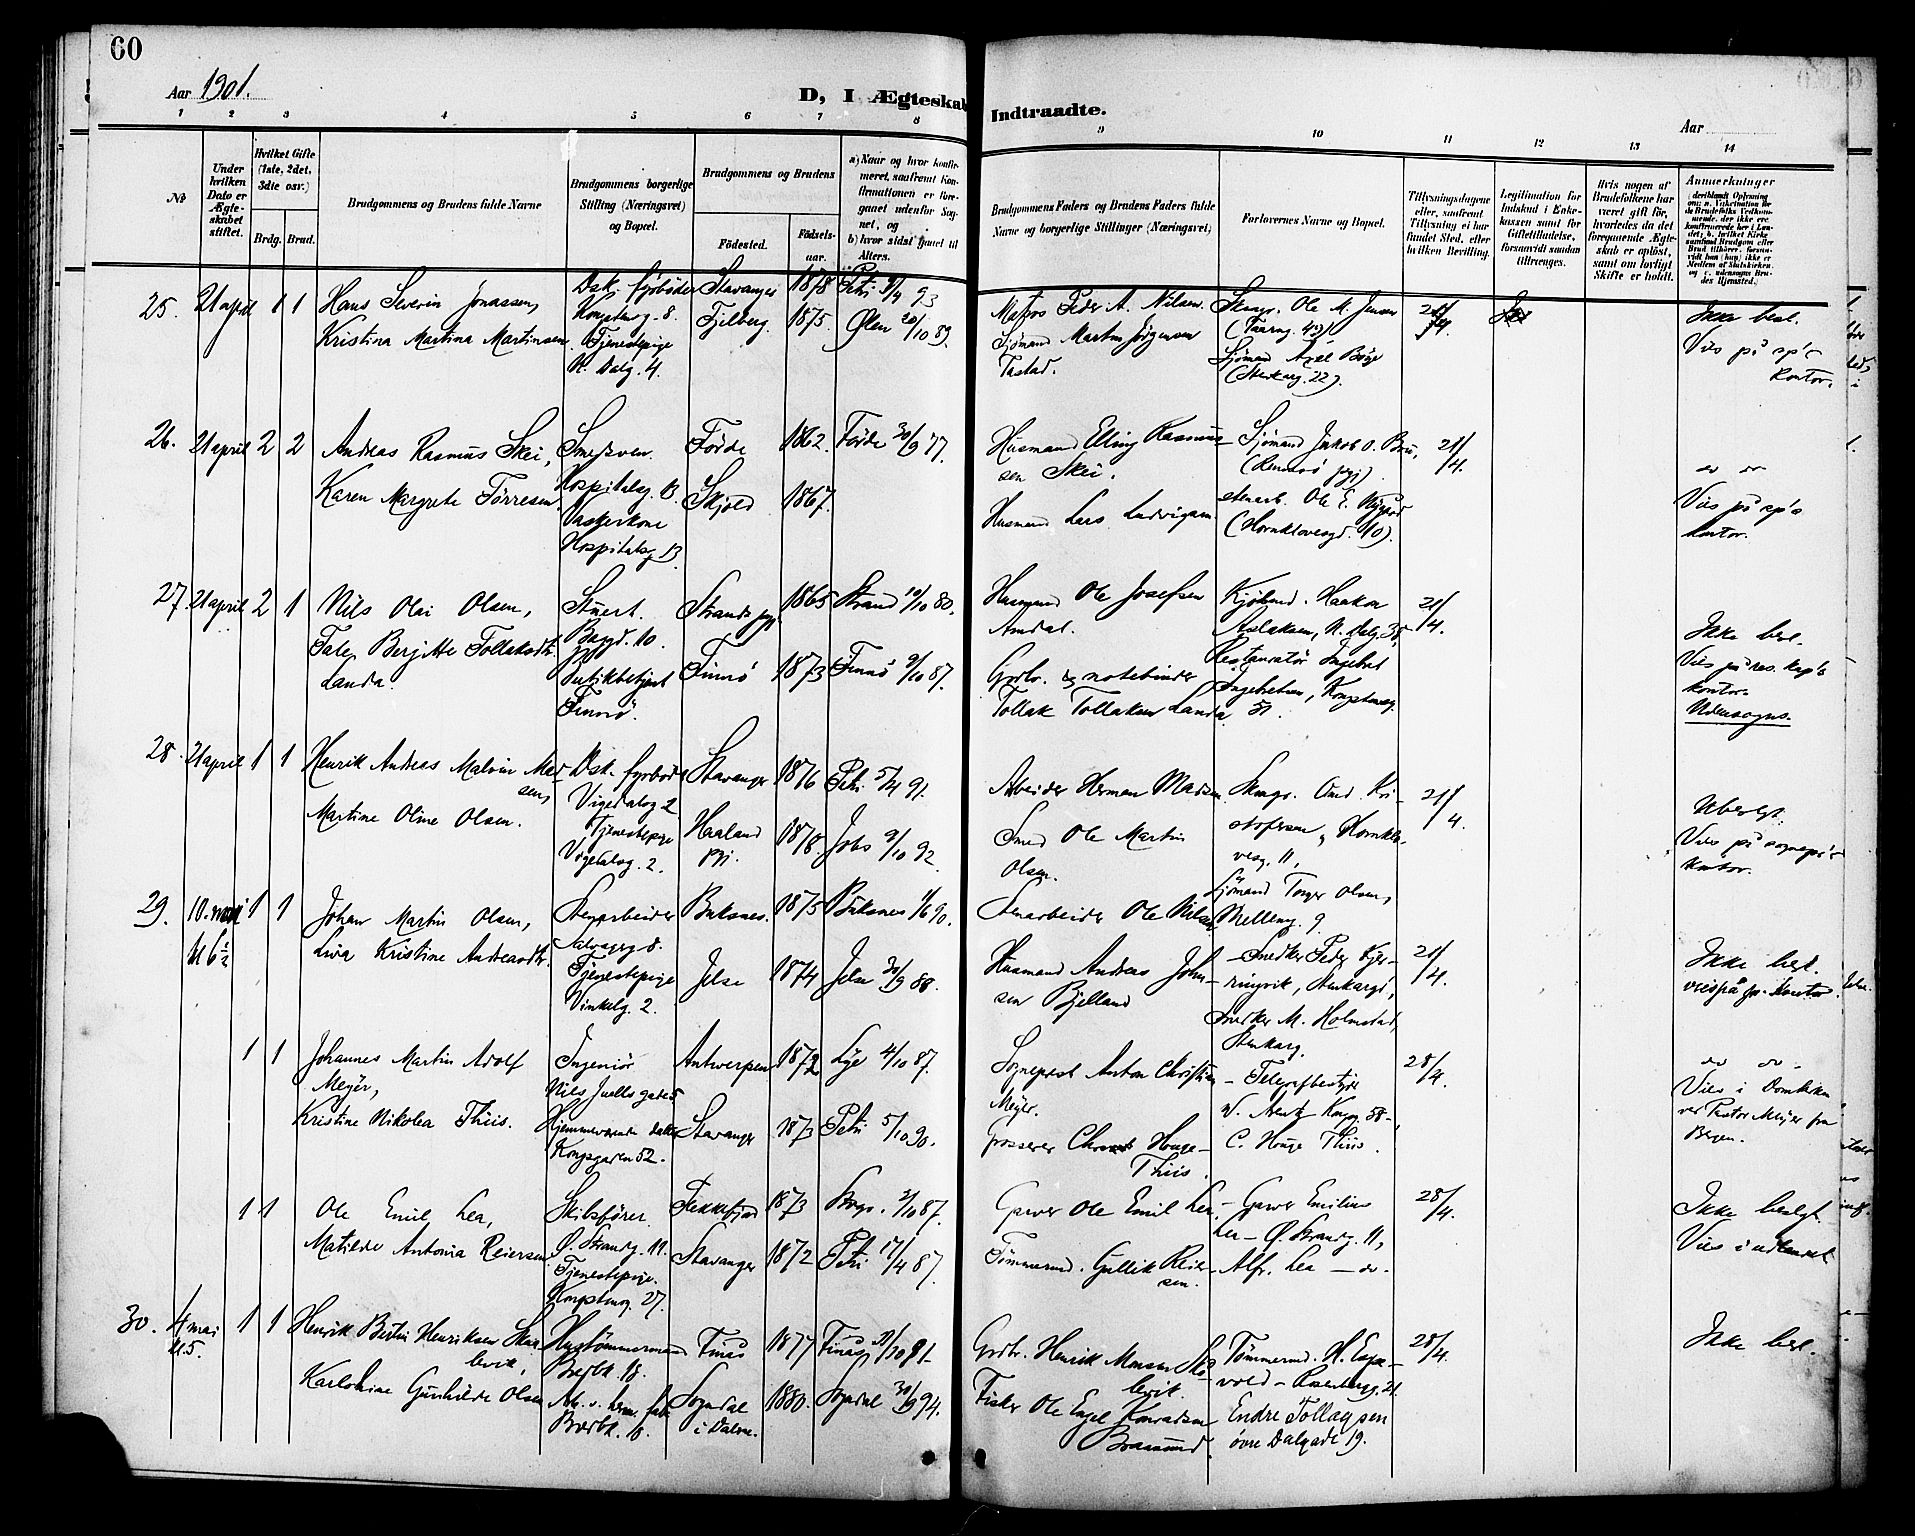 60
Aar 1901.
D, I Ægteskab
Indtraadte.
Aar
1 2 3 4 5 6 7 8
9 10 11 12 13 14
No
Under hvilken Dato er Ægteskabet stiftet.
Hvilket Gifte (1ste, 2det, 3die osv.)
Brdg. Brud.
Brudgommens og Brudens fulde Navne
Brudgommens borgerlige Stilling (Næringsvei) og Bopæl.
Brudgommens og Brudens
Fødested.
Fødselsaar.
a) Naar og hvor konfirmeret, saafremt Konfirmationen er foregaaet udenfor Sognet, og
b) hvor sidst gaaet til Alters.
Brudgommens Faders og Brudens Faders fulde Navne og borgerlige Stillinger (Næringsvei)
Forlovernes Navne og Bopæl.
Tillysningsdagene eller, saafremt Tillysning ei har fundet Sted, efter hvilken Bevilling.
Legitimation for Indskud i Enkekassen samt for Giftetilladelse, forsaavidt saadan tiltrænges.
Hvis nogen af Brudefolkene har været gift før, hvorledes da det foregaaende Ægteskab er opløst, samt om lovligt Skifte er holdt.
Anmerkninger
25. 21 april 1 1
Hans Severin Jonassen,
Kristina Martina Martinsen.
Dsk. fyrbøder
Kongstensg. 8.
Tjenestepige
N. Dalg. 4.
Stavanger 1878
Fjelberg. 1875.
Petri 9/4 93
Ølen 20/10 89.
Matros Peder A. Nilsen.
Sjømand Martin Jørgensen
Tastad.
Skomgr. Ole M. Jensen
Sjømand Axel Bøge
21/4.
Ikke besl.
Vies på sp's
kontor.
26. 21 april 2 2
Andreas Rasmus Skei,
Karen Margrete Tørresen.
Smedsven.
Hospitalsg. 13
Vaskerkone
Hospitalsg 13
Førde 1862.
Skjold 1867.
Førde 30/9 77.
Husmand Elling Rasmus-
sen Skei.
Husmand Lars Ludvigsen.
Sjømand Jakob O. Bru,
(Rennesø pgj).
stenarb. Ole E.
21/4.
do do
Vies på sp's
kontor.
27. 21 april 2 1
Nils Olai Olsen,
Tale Bergitte Tollaksdtr.
Landa.
Stuert.
Bagd. 10.
Butikbetjent
Finnø.
Strands pgj. 1865
Finnø 1873
Strand 10/10 80.
Finnø 9/10 87.
Husmand Ole Josefsen
Amdal.
Gbr. og notebinder
Tollak Tollaksen Landa.
Kjøbmd. Haakon
Aslaksen, N. Dalg. 38,
Restauratør Ingebret
Ingebretsen, Kongstensg.
51.
21/4.
Ikke besl.
Vies på res. kap's
kontor.
Udensogns.
28. 21 april 1 1
Henrik Andreas Malvin Mad-
sen,
Martine Oline Olsen.
Dsk. fyrbøder
Vigedalsg 2
Tjenestepige
Vigedalsg. 2.
Stavanger 1876
Haaland pgj. 1878.
Petri 5/4 91.
Jobs 9/10 92
Arbeider Herman Madsen.
Smed Ole Martin
Olsen.
Skomgr. Omd. Kri-
stofersen, Hornklo-
vesg. 11,
Sjømand Torger Olsen,
Melleng. 9.
21/4.
Ubeslgt.
Vies på sognepr's
kontor.
29. 10. mai 1 1
kl 6½
Johan Martin Olsen,
Lina Kristine Andreasdtr.
Stenarbeider
Salvagerg 8.
Tjenestepige
Vinkelg. 2.
Buksnes. 1875
Jelse 1874
Buksnes 1/6 90.
Jelse 30/9 88.
Stenarbeider Ole Nilsen
Husmand Andreas John-
sen Bjelland
Snedker Peder Kjer-
ringvik, Stenkargt,
Snedker M. Holmstad,
Stenkarg.
21/4.
Ikke besl.
vies på pr. kontor.
1 1
Johannes Martin Adolf
Meyer,
Kristine Nikolea Thiis.
Ingeniør
Nils Juells gade 5
Hjemmeværende datter
Kongsgaden 52.
Antwerpen 1872
Stavanger 1873
Lye 4/10 87.
Petri 5/10 90.
Sogneprest Anton Christian
Meyer.
Grosserer Christ Houge-
Thiis.
Telegrafbestyr
W. Arentz Kongsg. 58,
C. Houge Thiis.
28/4.
do do.
Vies i Domkirken
ver Pastor Meyer fra
Bergen.
1 1
Ole Emil Lea,
Matilde Antonia Reiersen.
Skibsfører.
Ø. Strandg. 11.
Tjenestepige.
Kongstensg. 27.
Fekkefjord 1873
Stavanger 1872
2/10 87.
Petri 17/4 87.
Garver Ole Emil Lea.
Tømmermd. Gullik Reier-
sen.
Garver Emilius
Lea Ø. Strandg. 11,
Alfr. Lea do.
28/4.
Ikke beslgt.
Vies i udlandet
30. 4 mai 1 1
kl 5.
Henrik Bertin Henriksen Skar-
levik,
Karloline Gunhilde Olsen
Hustømmermand
Bredbk. 18.
Arb. v. herm. fab.
Bredbk. 18.
Finås 1877
Sogndal i Dalene. 1880.
Finås 11/10 91
Sogndal 30/9 94.
Gbr. Henrik Monsen
levik.
Fisker Ole Engel Konradsen
Brasund.
Tømmermd. H. Espe-
vold Rosenbergg. 21.
Endre Tollagsen
øvre Dalgade 19.
28/4.
Ikke besl.